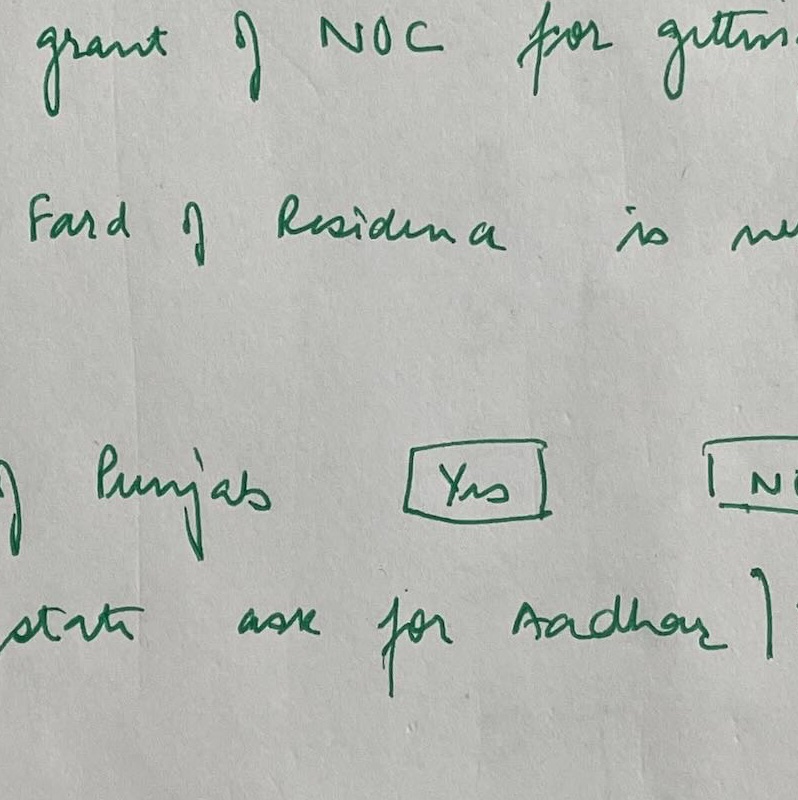 grant of NOC for gettin
Fard of Residence is ne
of Punjab Yes No
state ask for Aadhar )